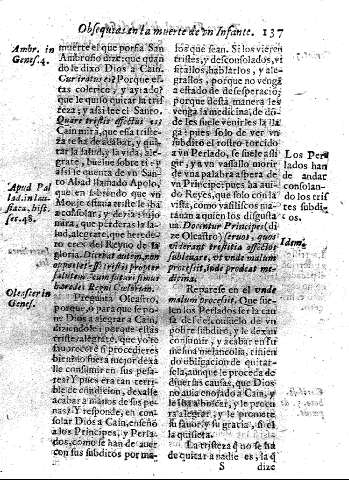 Obsequias en la muerte de vn Infante. 137
Ambr. in
Genes. 4.
muerte el que porfia San
Ambrosio dize: que quan
do le dixo Dios a Cain.
Cur iratus es? Porque es-
tas colerico, y ayrado?
que le quiso quitar la tris
teza; y assi lee el Santo.
Quare tristis effectus es?
Cain mira, que essa triste-
za te ha de acabar, y qui-
tar la salud, y la vida, ale-
grate, buelue sobre ti y
assi le cuenta de vn San-
to Abad llamado Apolo,
que en sabiendo que vn
Monje estaua triste le iba
a consolar, y deziasu jo
mira, que perderas la sa-
lud, alegrate, que herede-
ro eres del Reyno de la
gloria. Dicebat autem, non
oportet esse tristes propter
salutem cum futuri simus
haeredes Regni Caelorum.
Apud Pal
lad. in lau-
siaca, hist.
sec. 48.
Pregunta Oleastro,
porque, o para que se po-
ne Dios a alegrar a Cain,
diziendole: porque estas
triste, alegrate, que yo te
fauoreceré si procedieres
bien no fuera mejor dexa
lle consumir en sus pesa-
res? Y pues era tan terri-
ble de condicion, dexalle
acabar a manos de sus pe-
nas? Y responde, en con-
solar Dios a Cain, enseñó
a los Principes, y Perla-
dos, como se han de auer
con sus subditos por ma-
Oleaster in
Genes.
los que sean. Si los vieren
tristes, y desconsolados, vi
sitallos, hablarlos, y ale-
grallos, porque no venga
a estado de desesperacion;
porque desta manera les
venga la medicina, de dõ-
de les suele venirles la lla
ga: pues solo de ver vn
subdito el rostro torcido
a vn Perlado, se suele assi
gir, y a vn vasallo morir
de vna palabra aspera de
vn Principe: pues ha aui-
do Reyes, que solo con la
vista, como vasiliscos ma-
tauan a quien los disgusta
ua. Docentur Principes (di
ze Oleastro) seruos, quos
viderant tristitia affectos
subleuare, vt vnde malum
processit, inde prodeat me-
dicina.
Los Per-
lados han
de andar
consolan-
do los tris
tes subdi-
tos.
Idem.
Reparese en el vnde
malum processit. Que sue-
len los Perlados ser la cau
sa de desconsuelo de vn
pobre subdito, y le dexan
consumir, y acabar en su
misma melancolia, tiñien
do obligacion de quitar-
sela, aunque le proceda de
diuersas causas, que Dios
no auia enojado a Cain, y
le iba a buscar, y le procu
ra alegrar, y le promete
su fauor, y su gracia, si el
la quisiera.
La tristeza q̃ no se ha
de quitar a nadie es, la q̃
S dize